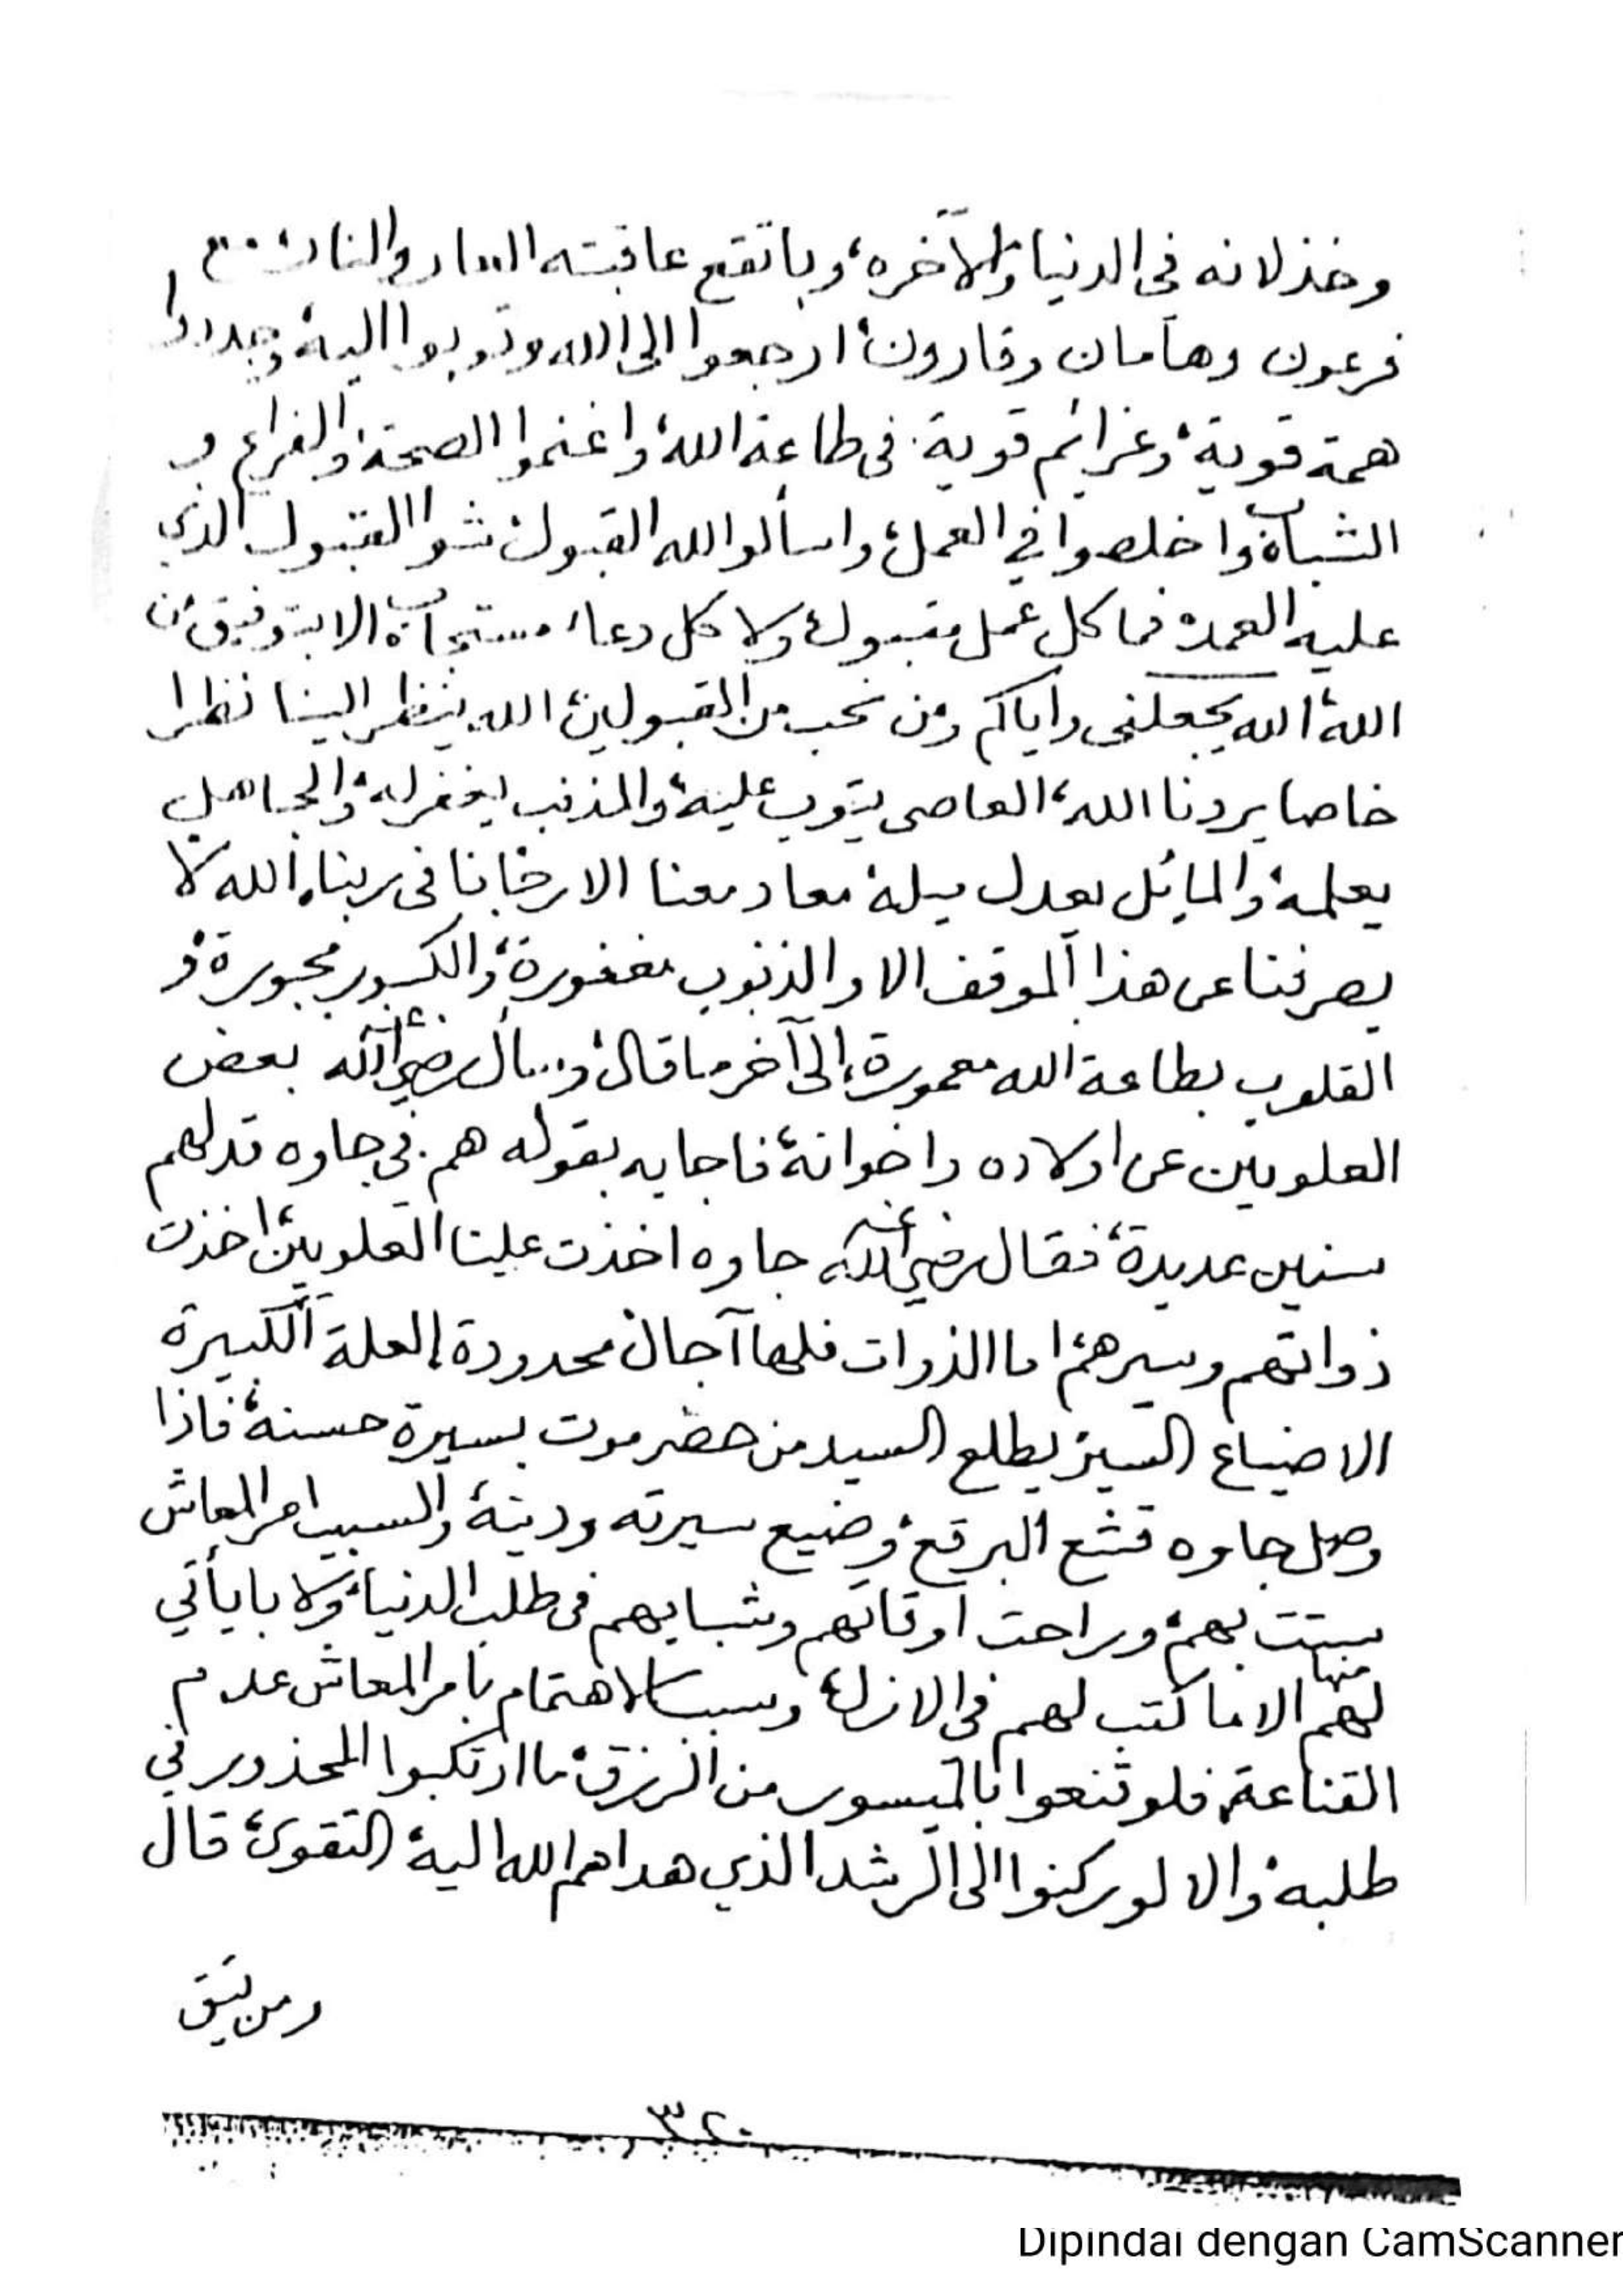 وخذلانه فى الدنيا والآخره، وباتقع عاقبته الدمار والنار، مع
فرعون وهامان وقارون، ارجعوا الى الله وتوبوا اليه، وجددوا
همة قوية، وعزائم قوية، فى طاعة الله، واغنموا الصحة، والفراغ و
الشباب، واخلصوا في العمل، واسألوا الله القبول، شوا القبول الذي
عليه العمدة فما كل عمل مقبول، ولا كل دعاء مستجاب، الا بتوفيق من
الله، الله يجعلنى واياكم ومن نحب من المقبولين، الله ينظر الينا نظرا
خاصا يردنا الله، العاصى يتوب عليه، والمذنب يغفر له، والجاهل
يعلمه، والمائل يعدل ميله، معاد معنا الا رخانا فى ربنا، الله لا
يصرفنا عن هذا الموقف الا والذنوب مغفورة، والكسور مجبورة، و
القلوب بطاعة الله معمورة، إلى آخر ما قال، وسأل رضي الله عنه بعض
العلويين عن اولاده واخوانه، فاجابه بقوله هم فى جاوه قد لهم
سنين عديدة، فقال رضي الله عنه جاوه اخذت علينا العلويين، اخذت
ذواتهم وسيرهم، اما الذوات فلها آجال محدودة، العلة الكبيرة
الا ضياع السير، يطلع السيد من حضرموت بسيرة حسنة، فاذا
وصل جاوه قشع البرقع، وضيع سيرته ودينه، والسبب امر المعاش
سبتت بهم، وراحت اوقاتهم وشبابهم فى طلب الدنيا، ولا بايأتي
لهم منها الا ما كتب لهم فى الازل، وسبب الاهتمام بامر المعاش عدم
القناعة، فلو قنعوا بالميسور من الرزق، ما ارتكبوا المحذور في
طلبه، والا لو ركنوا الى الرشد الذي هداهم الله اليه، التقوى، قال
ومن يتق
٣٢٠
Dipindai dengan CamScanner